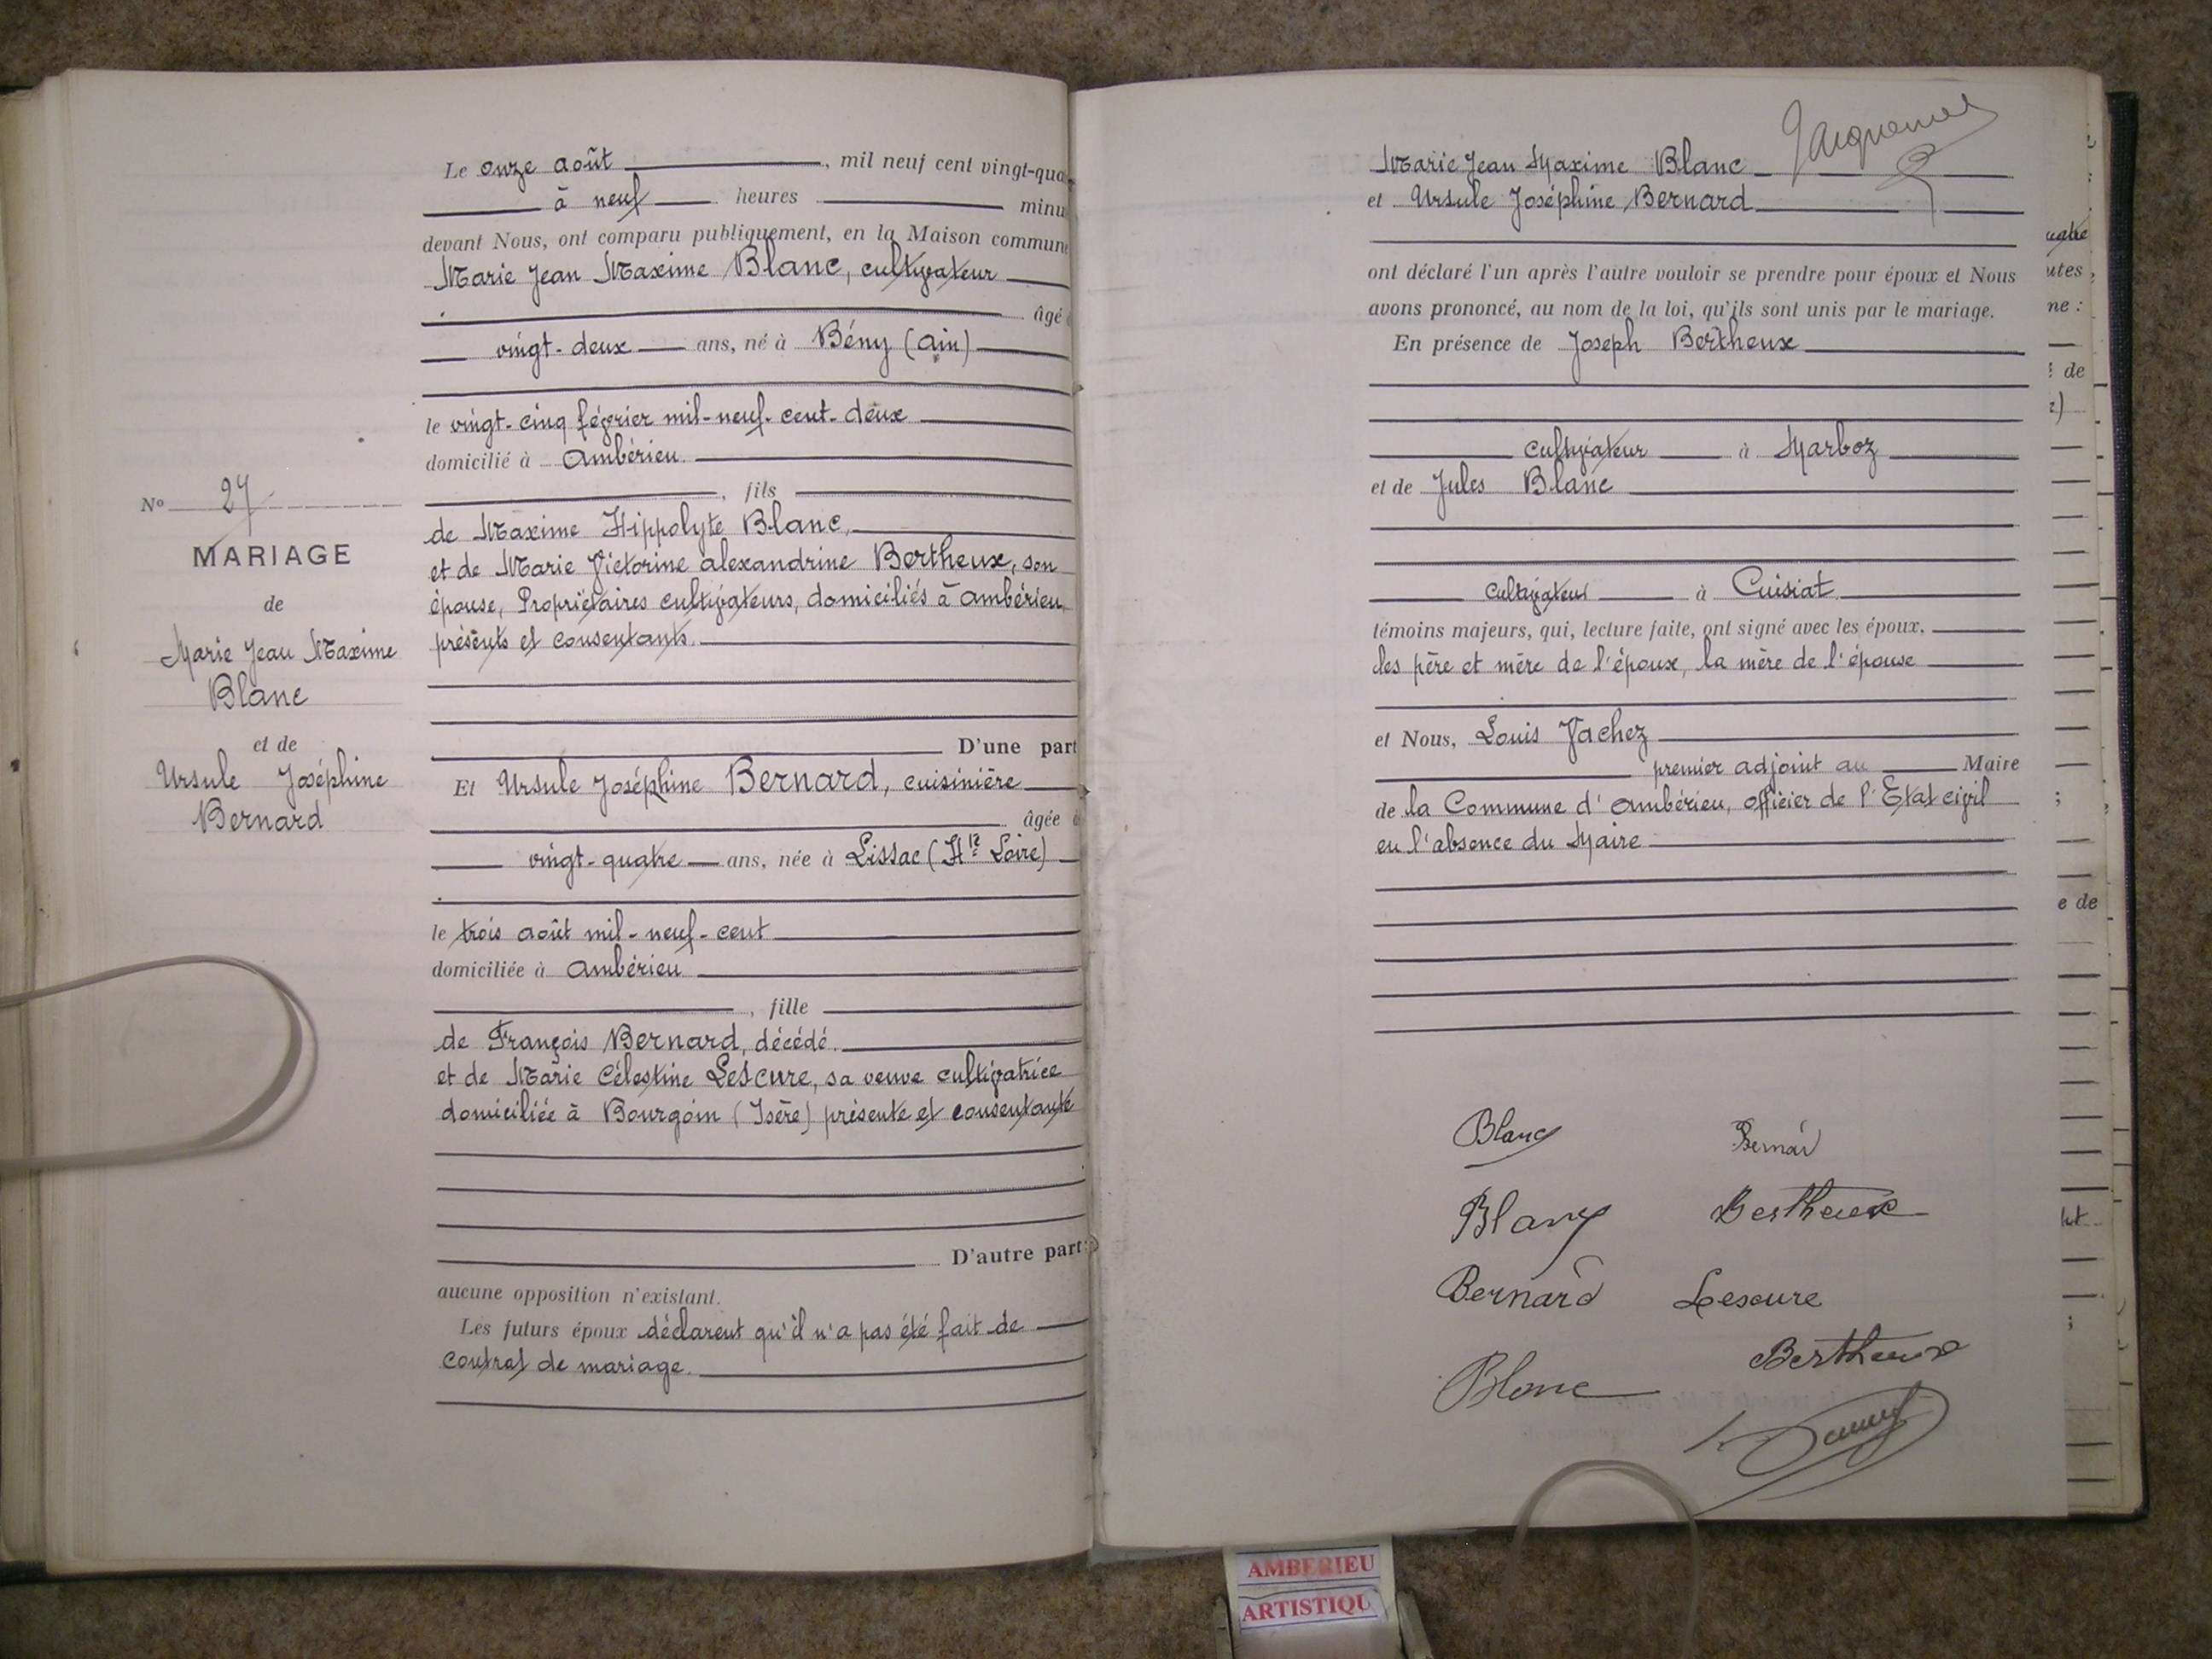 Le onze août, mil neuf cent vingt-qua
à neuf heures minu
devant Nous, ont comparu publiquement, en la Maison commune
Marie Jean Maxime Blanc, cultivateur
âgé
vingt-deux ans, né à Bény (Ain)
le vingt-cinq février mil-neuf-cent-deux
domicilié à Ambérieu
, fils
de Maxime Hippolyte Blanc,
et de Marie Victorine Alexandrine Bertheux, son
épouse, Propriétaires cultivateurs, domiciliés à Ambérieu,
présents et consentants.
D'une part
Et Ursule Joséphine Bernard, cuisinière
âgée
vingt-quatre ans, née à Lissac (Hte Loire)
le trois août mil-neuf-cent
domiciliée à Ambérieu
, fille
de François Bernard, décédé.
et de Marie Célestine Lescure, sa veuve cultivatrice
domiciliée à Bourgoin (Isère) présente et consentante
D'autre part
aucune opposition n'existant.
Les futurs époux déclarent qu'il n'a pas été fait de
contrat de mariage.
No 27
MARIAGE
de
Marie Jean Maxime
Blanc
et de
Ursule Joséphine
Bernard
Marie Jean Maxime Blanc
et Ursule Joséphine Bernard
ont déclaré l'un après l'autre vouloir se prendre pour époux et Nous
avons prononcé, au nom de la loi, qu'ils sont unis par le mariage.
En présence de Joseph Bertheux
cultivateur à Marboz
et de Jules Blanc
cultivateur à Cuisiat
témoins majeurs, qui, lecture faite, ont signé avec les époux,
les père et mère de l'époux, la mère de l'épouse
et Nous, Louis Vachez
premier adjoint au Maire
de la Commune d'Ambérieu, officier de l'Etat civil
en l'absence du Maire
Blanc Bernard
Blanc Bertheux
Bernard Lescure
Bertheux
Blanc
utes,
ne :
de
e de
;
AMBERIEU
ARTISTIQU